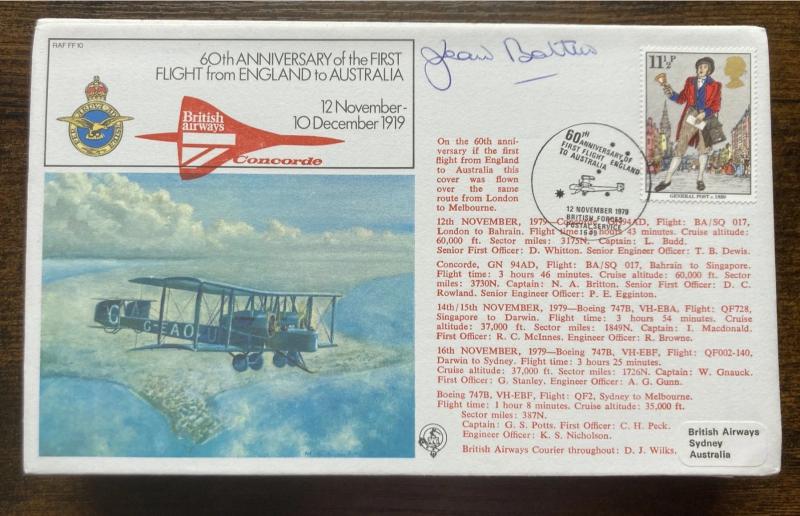 RAF FF 10
60th ANNIVERSARY of the FIRST
FLIGHT from ENGLAND to AUSTRALIA
12 November-
10 December 1919
British
airways
Concorde
Jean Batten
11½P
GENERAL POST c. 1839
60TH ANNIVERSARY OF
FIRST FLIGHT ENGLAND
TO AUSTRALIA
12 NOVEMBER 1979
BRITISH FORCES
POSTAL SERVICE
1649
On the 60th anni-
versary if the first
flight from England
to Australia this
cover was flown
over the same
route from London
to Melbourne.
12th NOVEMBER, 1979—Concorde, GN94AD, Flight: BA/SQ 017,
London to Bahrain. Flight time: 3 hours 43 minutes. Cruise altitude:
60,000 ft. Sector miles: 3175N. Captain: L. Budd.
Senior First Officer: D. Whitton. Senior Engineer Officer: T. B. Dewis.
Concorde, GN 94AD, Flight: BA/SQ 017, Bahrain to Singapore.
Flight time: 3 hours 46 minutes. Cruise altitude: 60,000 ft. Sector
miles: 3730N. Captain: N. A. Britton. Senior First Officer: D. C.
Rowland. Senior Engineer Officer: P. E. Egginton.
14th/15th NOVEMBER, 1979—Boeing 747B, VH-EBA, Flight: QF728,
Singapore to Darwin. Flight time: 3 hours 54 minutes. Cruise
altitude: 37,000 ft. Sector miles: 1849N. Captain: I. Macdonald.
First Officer: R. C. McInnes. Engineer Officer: R. Browne.
16th NOVEMBER, 1979—Boeing 747B, VH-EBF, Flight: QF002-140,
Darwin to Sydney. Flight time: 3 hours 25 minutes.
Cruise altitude: 37,000 ft. Sector miles: 1726N. Captain: W. Gnauck.
First Officer: G. Stanley. Engineer Officer: A. G. Gunn.
Boeing 747B, VH-EBF, Flight: QF2, Sydney to Melbourne.
Flight time: 1 hour 8 minutes. Cruise altitude: 35,000 ft.
Sector miles: 387N.
Captain: G. S. Potts. First Officer: C. H. Peck.
Engineer Officer: K. S. Nicholson.
British Airways Courier throughout: D. J. Wilks.
G-EAOU
British Airways
Sydney
Australia